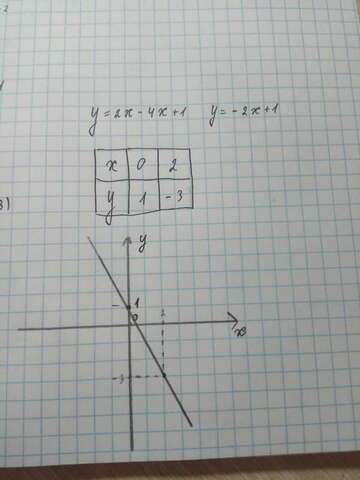 3)
y = 2x - 4x + 1 y = -2x + 1
x 0 2
y 1 -3
y
1
0 2
x
-3